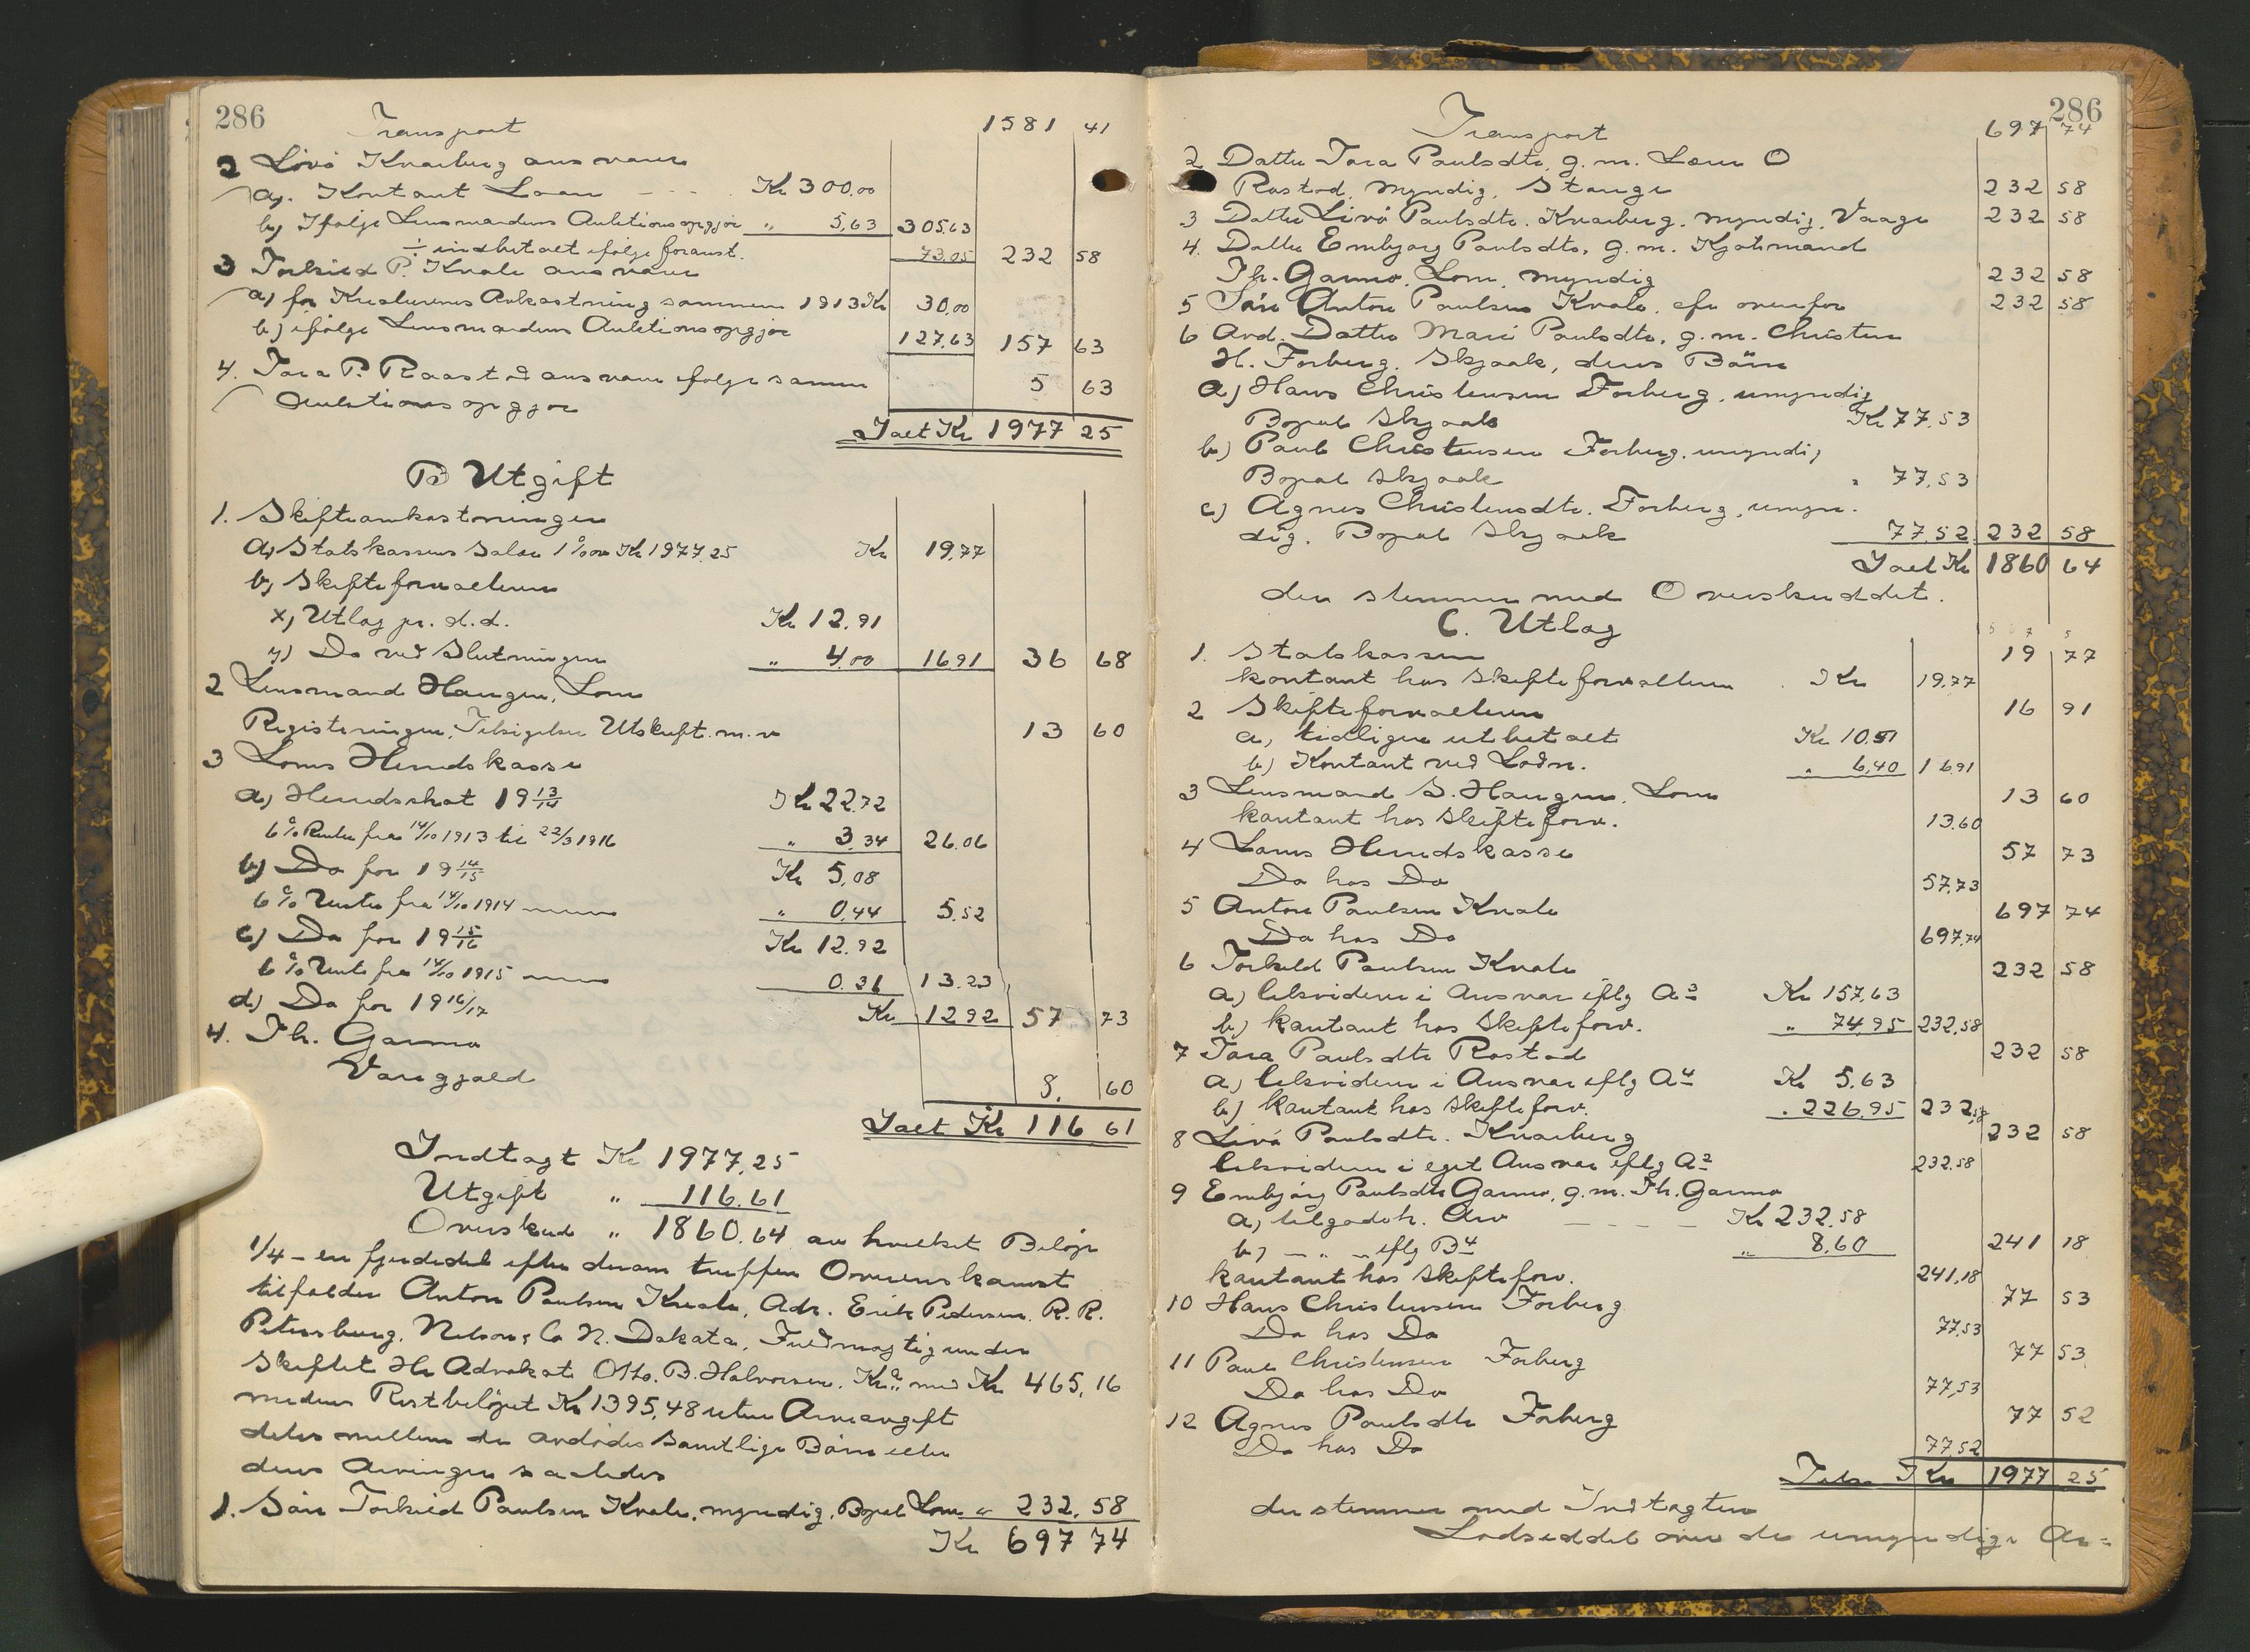 286
Transport 1581 41
2 Livö Kvarberg ansvarer
a). Kontant Laan - - - Kr 300.00
b) Ifølge Lensmandens Auktionsopgjør " 5,63 305.63
÷ indbetalt ifølge foranst. 73.05 232 58
3 Torkild P. Kvale ansvarer
a) for Kreaturenes Avkastning sommeren 1913 Kr 30,00
b) ifølge Lensmandens Auktionsopgjør 127.63 157 63
4. Tora P. Raastad ansvarer ifølge samme 5 63
Auktionsopgjør
Ialt Kr 1977 25
B Utgift
1. Skifteomkostninger
a) Statskassens Salær 1% av Kr 1977.25 Kr 19,77
b) Skifteforvalteren
x) Utlag pr. d.d. Kr 12.91
y) Do ved Slutningen " 4.00 1691 36 68
2 Lensmand Haugen, Lom
Registreringen, Tilsigelse Utskrift m.v 13 60
3 Loms Herredskasse
a) Herredsskat 19 13/14 Kr 22.72
6% Renter fra 14/10 1913 til 22/3 1916 " 3.34 26.06
b) Do for 19 14/15 Kr 5,08
6% Renter fra 14/10 1914 " 0.44 5.52
c) Do for 19 15/16 Kr 12.92
6% Rente fra 14/10 1915 0.31 13.23
d) Do for 19 16/17 Kr 1292 57 73
4. Th. Garmo
Varegjæld 8. 60
Ialt Kr 116 61
Indtægt Kr 1977,25
Utgift " 116.61
Overskud " 1860.64 av hvilket Beløp
1/4 - en fjerdedel efter derom truffen Overenskomst
tilfalder Anton Paulsen Kvale, Adr. Erik Pedersen. R. R.
Petersburg, Nelson, Co N. Dakata, Fuldmægtig under
Skiftet Hr Advokat Otto. B. Halvorsen. Kra med Kr 465,16
medens Restbeløpet Kr 1395,48 uten Arveavgift
deles mellem de avdødes samtlige Børn eller
deres Arvinger saaledes
1. Søn Torkild Paulsen Kvale, myndig, Bopæl Lom " 232. 58
Kr 697 74
286
Transport 697 74
2 Datter Tora Paulsdtr. g. m. Lom O
Rastad, myndig, Stange 232 58
3 Datter Livö Paulsdtr. Kvarberg, myndig, Vaage 232 58
4. Datter Embjørg Paulsdtr, g. m. Kjøbmand
Th. Garmo, Lom, myndig 232 58
5 Søn Anton Paulsen Kvale, cfr ovenfor 232 58
6 Avd. Datter Mari Paulsdtr, g. m. Christen
H. Forberg, Skjaak, deres Børn
a) Hans Christensen Forberg, umyndig
Bopæl Skjaak Kr 77,53
b) Paul Christensen Forberg, umyndig
Bopæl Skjaak " 77,53
c) Agnes Christensdtr. Forberg, umyn-
dig. Bopæl Skjaak 77 52 232 58
Ialt Kr 1860 64
der stemmer med Overskuddet.
C. Utlæg
1. Statskassen 19 77
kontant hos Skifteforvalteren Kr 19.77
2 Skifteforvalteren 16 91
a) tidligere utbetalt Kr 10.51
b) Kontant ved Lodn. " 6,40 16.91
3 Lensmand S. Haugen, Lom 13 60
kontant hos Skifteforv. 13.60
4 Loms Herredskasse 57 73
Do hos Do 57,73
5 Anton Paulsen Kvale 697 74
Do hos Do 697,74
6 Torkild Paulsen Kvale 232 58
a) likvideres i Ansvar iflg A3 Kr 157,63
b) kontant hos Skifteforv. " 74,95 232.58
7 Tora Paulsdtr Rastad 232 58
a) likvideres i Ansvar iflg A4 Kr 5.63
b) kontant hos Skifteforv. " 226,95 232,58
8 Livö Paulsdtr. Kvarberg 232 58
likvideres i eget Ansvar iflg A2 232.58
9 Embjørg Paulsdtr Garmo, g. m. Th. Garmo
a) tilgodeh. Arv - - - - Kr 232.58
b) - " - iflg B4 " 8.60 241 18
kontant hos Skifteforv. 241,18
10 Hans Christensen Forberg 77 53
Do hos Do 77,53
11 Paul Christensen Forberg 77 53
Do hos Do 77,53
12 Agnes Paulsdtr Forberg 77 52
Do hos Do 77,52
Tils. Kr 1977 25
der stemmer med Indtægten
Lodseddel over de umyndige Ar=